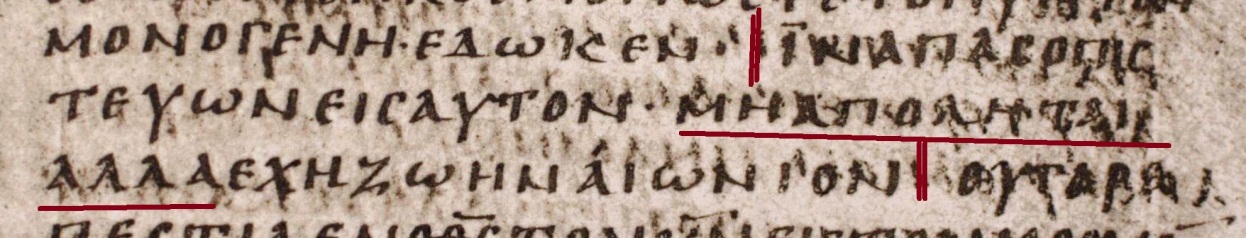 ΜΟΝΟΓΕΝΗ·ΕΔΩΚΕΝ· ΪΝΑΠΑϹΟΠΙϹ
ΤΕΥΩΝΕΙϹΑΥΤΟΝ· ΜΗΑΠΟΛΗΤΑΙ
ΑΛΛΑΕΧΗΖΩΗΝΑΙΩΝΙΟΝ ΟΥΓΑΡΑ